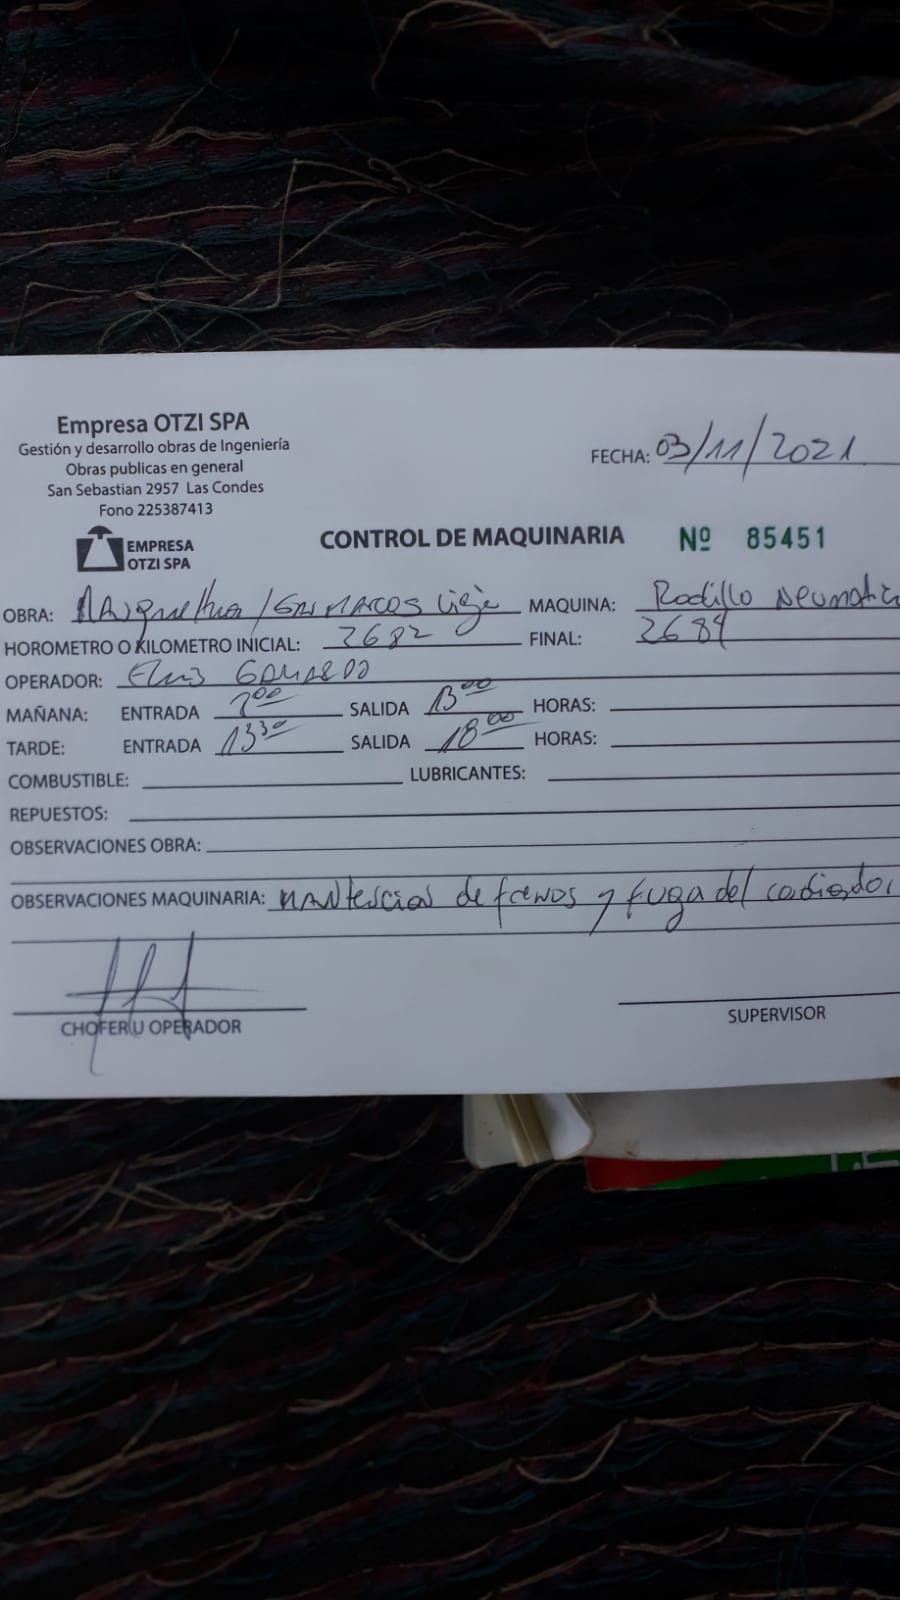 Empresa OTZI SPA
Gestión y desarrollo obras de Ingeniería
Obras publicas en general
San Sebastian 2957 Las Condes
Fono 225387413
FECHA: 03/11/2021
EMPRESA
OTZI SPA
CONTROL DE MAQUINARIA Nº 85451
OBRA: MAQUEHUA / SAN MARCOS MAQUINA: Rodillo Neumatic
HOROMETRO O KILOMETRO INICIAL: 2682 FINAL: 2684
OPERADOR:
MAÑANA: ENTRADA SALIDA 13 00 HORAS:
TARDE: ENTRADA 13 30 SALIDA 18 00 HORAS:
COMBUSTIBLE: LUBRICANTES:
REPUESTOS:
OBSERVACIONES OBRA:
OBSERVACIONES MAQUINARIA: de frenos y fuga del
CHOFER U OPERADOR SUPERVISOR